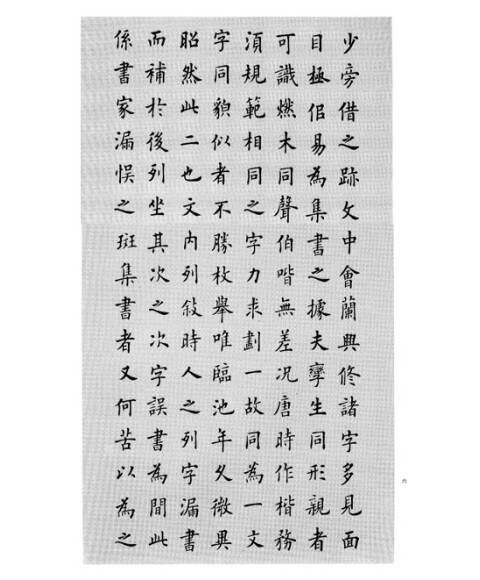 少旁借之跡文中會蘭興修諸字多見面
目極佀易為集書之據夫孿生同形親者
可識燃木同聲伯喈無差況唐時作楷務
須規範相同之字力求劃一故同為一文
字同貌似者不勝枚舉唯臨池年久微異
昭然此二也文内列敘時人之列字漏書
而補於後列坐其次之次字誤書為間此
係書家漏悮之斑集書者又何苦以為之